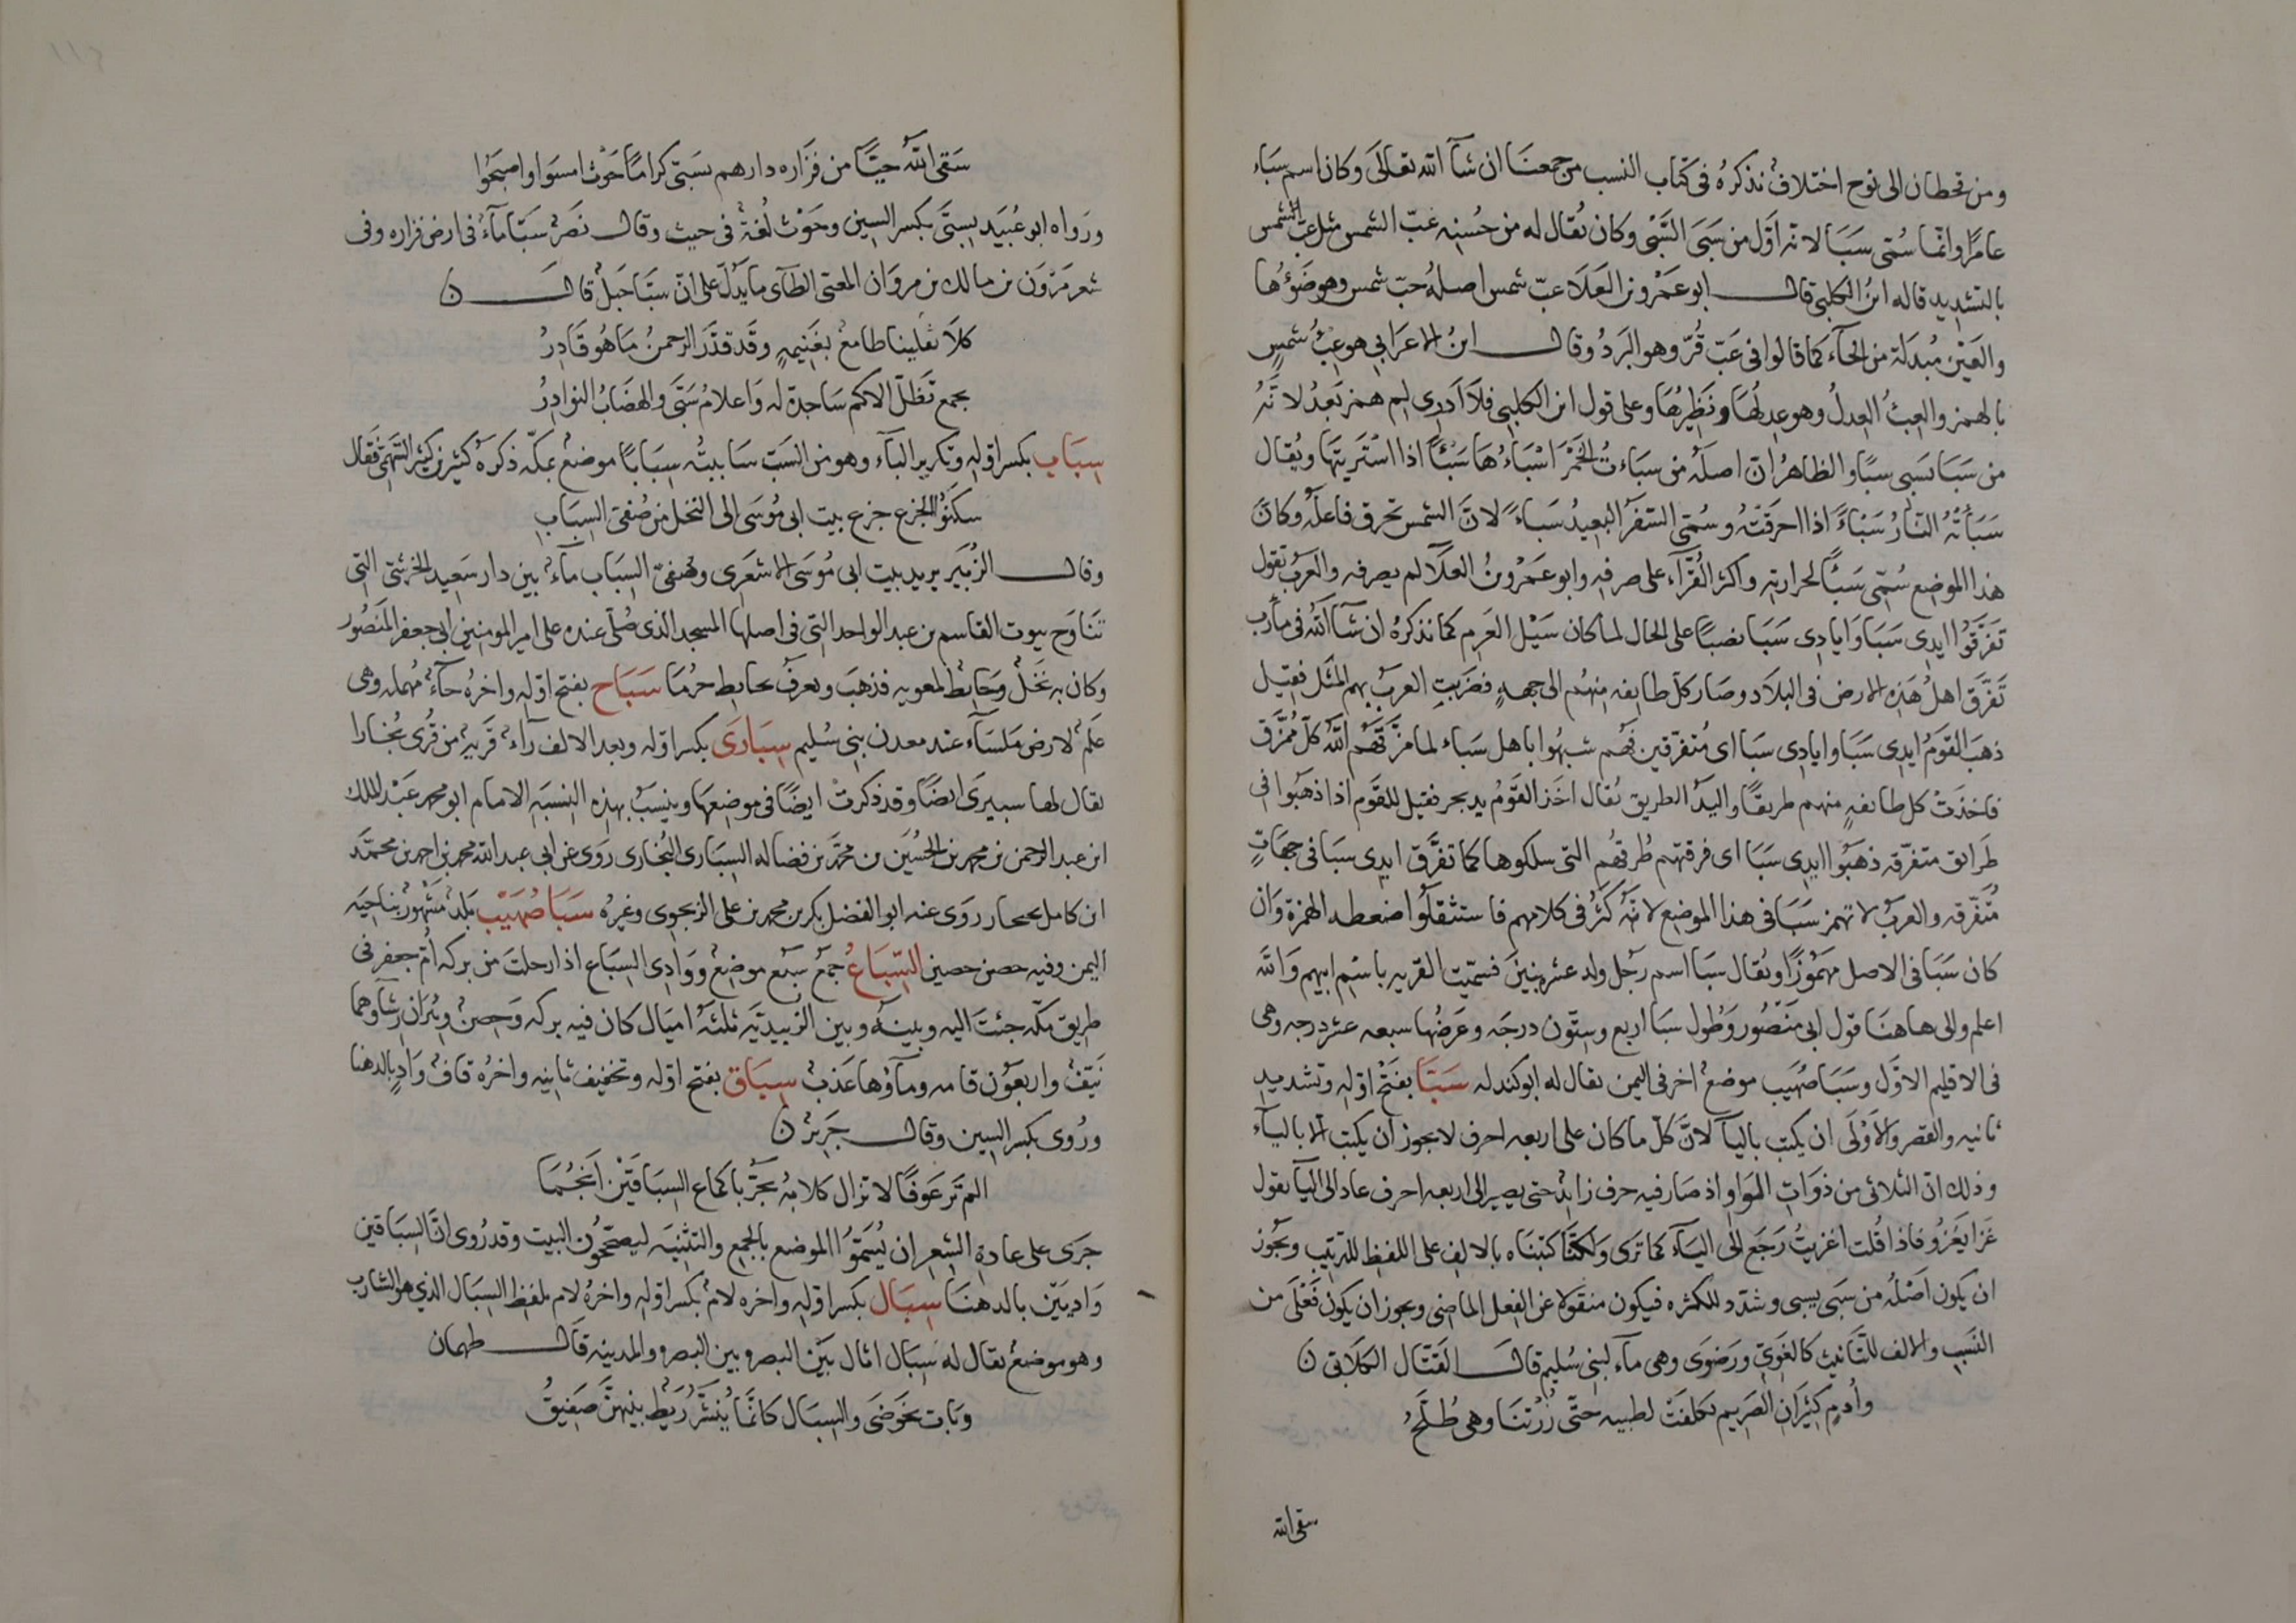 ومن قحطان الى نوح اختلافٌ نذكرهُ فى كتاب النسب من جمعنا ان شآ الله تعالَى وكان اسم سبَاء
عامرًا وانما سُمّى سَبَا لانه اوّل من سَبَى السَّبْى وكان يُقال له من حُسنِه عَبّ الشمس مثل عبّ الشمس
بالتشديد قاله ابنُ الكلبى قال ابو عَمْرو بن العَلَا عبّ شمس اصلهُ حبّ شمس وهو ضَوْءُها
والعَيْن مُبدَلة من الحآء كما قالوا فى عَبّ قُرّ وهو البَردُ وقال ابنُ الاعرَابي هو عِبْ شمسٍ
بالهمز والعبْ العِدلُ وهو عِدلهَا ونَظِيرُهَا وعلى قول ابن الكلبى فلَا ادرى لِم همز بَعدُ لانّهُ
من سَبَا يَسْبى سبيًا والظاهرُ ان اصلهُ من سبَاءتُ الخَمْرَ اسْبَاءُهَا سَبْئًا اذا اشتريتَها ويُقال
سَبَأتْهُ النارُ سَبْاءً اذا احرقَتْهُ وسُمّى السّفَرُ البَعيدُ سَباءً لانَّ الشمس تحرق فاعلَهُ وكانّ
هذا الموضع سُمّى سَبَاً لحرارته واكثر القُرّآء على صرفه وابو عَمْرو بنُ العلَآ لم يصرفه والعَرَبُ تقول
تَفَرَّقُوا ايدِى سَبَا وَايادِى سَبَا نصبًا على الحال لما كان سَيْل العَرِم كما نذكرهُ ان شآ الله فى مأرب
تَفَرّق اهلُ هَذِه الارض فى البِلَاد وصَار كل طايفه مِنهُم الى جهةٍ فضَرَبتِ العربُ بهم المثَل فقيل
ذهبَ القَومُ ايدِى سَبَا وايادِى سَبَا اى مُتفرّقين فهُم شبهُوا باهل سَبَاء لما مزّقَهُم اللهُ كلّ مُمزَّق
فاخذتْ كل طايفهٍ منهم طريقًا واليَدُ الطريق يُقال اخَذ القَومُ يد بحر فقيل للقَوم اذا ذهَبُوا فى
طَرايق متفرّقه ذهَبُوا ايدِى سَبَا اى فرقتهم طُرقهُم التى سلكوها كما تفَرَّق ايدِى سبَا فى جهَاتٍ
مُتَفرّقه والعَربُ لا تهمز سَبَا فى هذا الموضِع لانّهُ كثُر فى كلامِهم فاستثقلُوا ضغطه الهمزة وَان
كان سَبَا فى الاصل مَهْمُوزًا ويُقال سَبَا اسم رجُل ولد عشره بنينَ فسمّيت القريه باسْم ابيهم وَالله
اعلم والى هاهنَا قول ابى مَنْصُور وَطُول سَبَا اربع وستّون درجَه وعَرضُها سبعه عشر درجه وهى
فى الاقليم الاوّل وسَبَا صُهَيب موضعٌ اخر فى اليمن يقال له ابو كندله سَبّا بفَتْح اوّلهِ وتشديد
ثانيه والقصر والاَوْلَى ان يكتب باليآ لانَّ كلّ ما كان على اربعه احرف لا يجوز أن يكتب الا باليآء
وذلك انّ الثلاثى من ذوَاتِ الوَاو اذ صَار فيه حرف زايدٌ حتى يصير الى اربعه احرف عاد الى اليآ تقول
غَزا يَغزُو فاذا قُلت اغزيتُ رَجَع الى اليَآء كما ترَى وَلكنّا كتبنَاه بالالِف على اللفظ للترتيب ويجُوز
ان يكون اصْلُه من سَبَى يسبى وشدّد للكثره فيكون منقولا عن الفِعل الماضى ويجوز ان يكون فَعْلَى من
السَّبِ والالف للتّانيث كالغَوَىّ ورَضوَى وهى مآء لبنى سُليم قال القَتّال الكِلَابّى ن
وأُدمٍ كثيرَان الصّريم تكلفَتْ لظبيه حتّى زُرْتنَا وهى طُلَّحُ
سقى الله
سَقى اللهُ حيّا من فَزَاره دارهم بسَبّى كرامًا حَوْثُ امسَوا واصبَحُوا
ورَواه ابو عُبَيَد بسِبّى بكسر السين وحَوْث لُغةٌ فى حيث وقال نصَرٌ سَبّا مآءٌ فى ارض فزاره وفى
شعر مَرْوَن بن مالك بن مروَان المعنى الطآى ما يَدُلّ على انّ سَبّا جَبَلٌ قال ن
كلَا ثعلبينا طامعٌ بغَنيمهٍ وقَد قدّر الرحمنُ مَا هُو قَادِرُ
بجمع تَظَلّ الاكم سَاجدة له وَاعلامُ سَبّى والهضَابُ النوادِرُ
سِبَاب بكسر اوّلهِ وتكرير البآء وهو من السّبَ سَابَبتُه سِبَابًا موضعٌ بمكّه ذكرَهُ كثير بن كثير السّهمىّ فقال
سكنُوا الجزع جزع بيت ابى مُوسَى الى النخل من صُفىّ السِبَابِ
وقال الزُبَير يريد بيت ابى مُوسَى الاشعَرى وصُفىّ السِبَاب مآءٌ بين دار سَعيد الحَرَشىّ التى
تَنَاوَح بيوت القاسم بن عبد الواحد التى فى اصلها المسجد الذى صُلّى عنده على امير المومنين ابى جعفر المنَصُور
وكان بهِ نَخْلٌ وَحَائطٌ لمعويه فذهَبَ ويعرَفُ بحايط خرمَا سَبَاح بفتح اوّلهِ واخرُه حآءٌ مُهمله وهى
علَمٌ لارض مَلسَآء عند معدن بنى سُليم سِبَارَى بكسر اوّله وبعد الالف رآءٌ قَريهٌ من قُرى بُخَارا
يقال لها سبيرَى ايضًا وقد ذكرتْ ايضًا فى موضعِهَا وينسَبُ بهذِه النسبَه الامام ابو محمد عَبْد الملك
ابن عبد الرحمن بن محمد بن الحُسَين بن محمَّد بن فضاله السِبَارى البُخارى رَوى عن ابى عبد الله محمد بن احمد بن محمَّد
ان كامل روَى عنه ابو الفضل بكر بن محمد بن على الزبجوى وغيرُه سَبَا صُهَيْب بَلدٌ مَشْهُورٌ بنَاحيَه
اليمن وفيه حصن حصين السِّبَاعُ جمعُ سَبُع موضِعٌ ووَادِى السِبَاع اذا رحلتَ من بركه أُم جعفر فى
طريق مكّه جئت اليه وبينَهُ وبين الزُبيديّه ثلثه اميَال كان فيه بركه وَحِصنٌ وبئرَان رشَآوهما
نَيّفٌ واربعُون قامه ومآؤها عَذبٌ سِبَاق بفتح اوّله وتخفيف ثانيه واخرُه قافٌ وَادٍ بالدهنا
ورُوى بكسر السِين وقال جَرِيرٌ ن
الم تَر عَوفًا لا تزال كلابُه تجُرّ باكماع السِبَاقَيْن اَلْحُمَا
جرَى على عادة الشعر ان يُسَمَّوُا الموضع بالجمع والتثنيَه ليصَحّحُون البيت وقد رُوى انّ السِبَاقين
وَاديَيّن بالدهنَا سِبَال بكسر اوّله واخره لامٌ بكسر اوّله واخرُه لام بلفظ السِبَال الذي هو الشارب
وهو موضعٌ يقال له سِبَال اثال بَيّن البصر وبين البصره والمدينه قال طهمان
وبَات بحَوضَى والسِبَال كانّما يُنَشَّرُ رَيطٌ بينهُنّ صَفيقُ